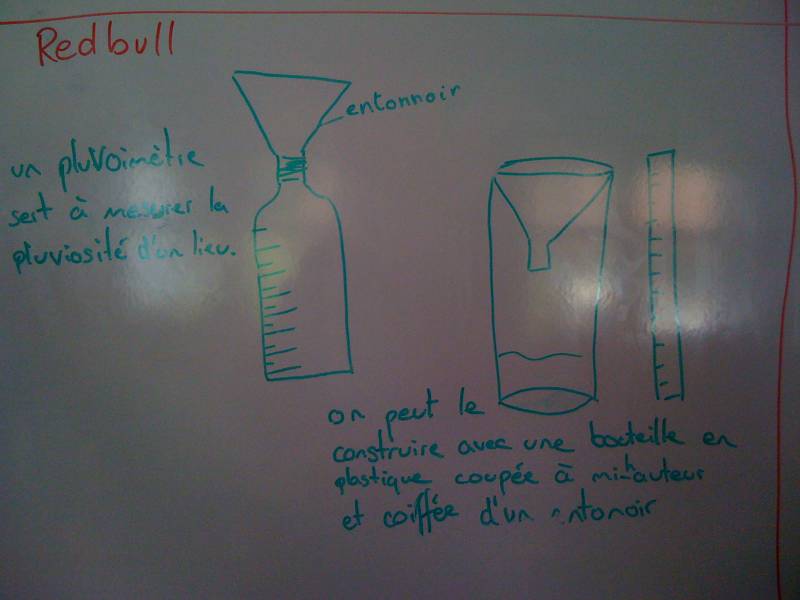 Redbull
entonnoir
un pluvoimètre
sert à mesurer la
pluviosité d'un lieu.
on peut le
construire avec une bouteille en
plastique coupée à mi-hauteur
et coiffée d'un entonoir